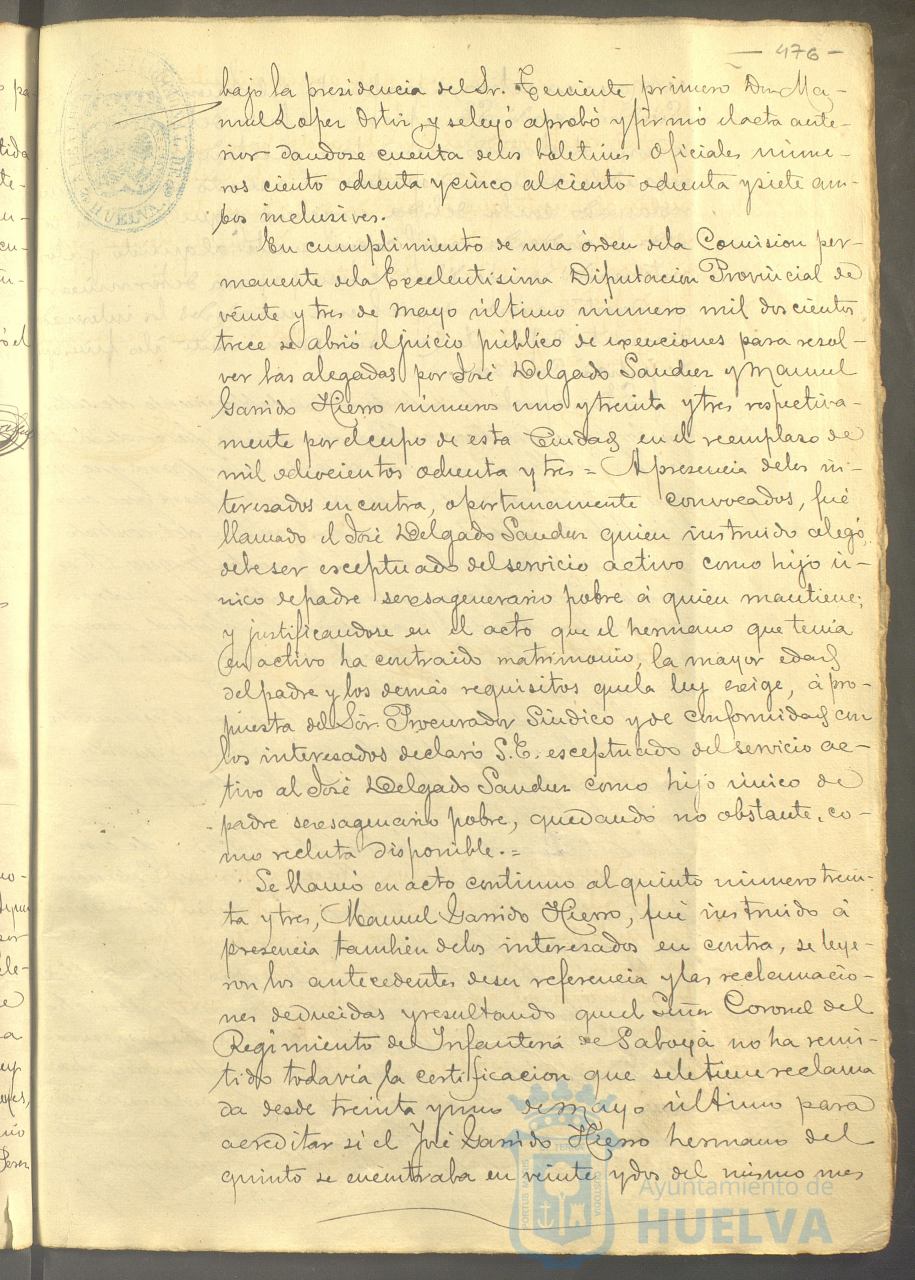 — 476 —
bajo la presidencia del Sr. Teniente primero Don Ma-
nuel Lopez Ortiz, y se leyó aprobó y firmó el acta ante-
rior dandose cuenta de los boletines Oficiales núme-
ros ciento ochenta y cinco al ciento ochenta y siete am-
bos inclusives.
En cumplimiento de una órden de la Comision per-
manente de la Excelentisima Diputacion Provincial de
veinte y tres de mayo último número mil doscientos
trece se abrió el juicio público de exenciones para resol-
ver las alegadas por José Delgado Sanchez y Manuel
Garrido Hierro números uno y treinta y tres respectiva-
mente por el cupo de esta Ciudad en el reemplazo de
mil ochocientos ochenta y tres = A presencia de los in-
teresados en contra, oportunamente convocados, fué
llamado el José Delgado Sanchez quien instruido alegó,
debe ser esceptuado del servicio activo como hijo ú-
nico de padre sexsagenerario pobre á quien mantiene;
y justificandose en el acto que el hermano que tenia
en activo ha contraido matrimonio, la mayor edad
del padre y los demás requisitos que la ley exige, á pro-
puesta del Sör. Procurador Sindico y de conformidad con
los interesados declaró S.E. esceptuado del servicio ac-
tivo al José Delgado Sanchez como hijo único de
padre sexsagenario pobre, quedando no obstante, co-
mo recluta disponible. =
Se llamó en acto continuo al quinto número trein-
ta y tres, Manuel Garrido Hierro, fué instruido á
presencia tambien de los interesados en contra, se leye-
ron los antecedentes de su referencia y las reclamacio-
nes deducidas y resultando que el Señor Coronel del
Regimiento de Infanteria de Saboya no ha remi-
tido todavía la certificacion que se le tiene reclama
da desde treinta y uno de mayo último para
acreditar si el José Garrido Hierro hermano del
quinto se encontraba en veinte y dos del mismo mes
HUELVA
Ayuntamiento de
HUELVA